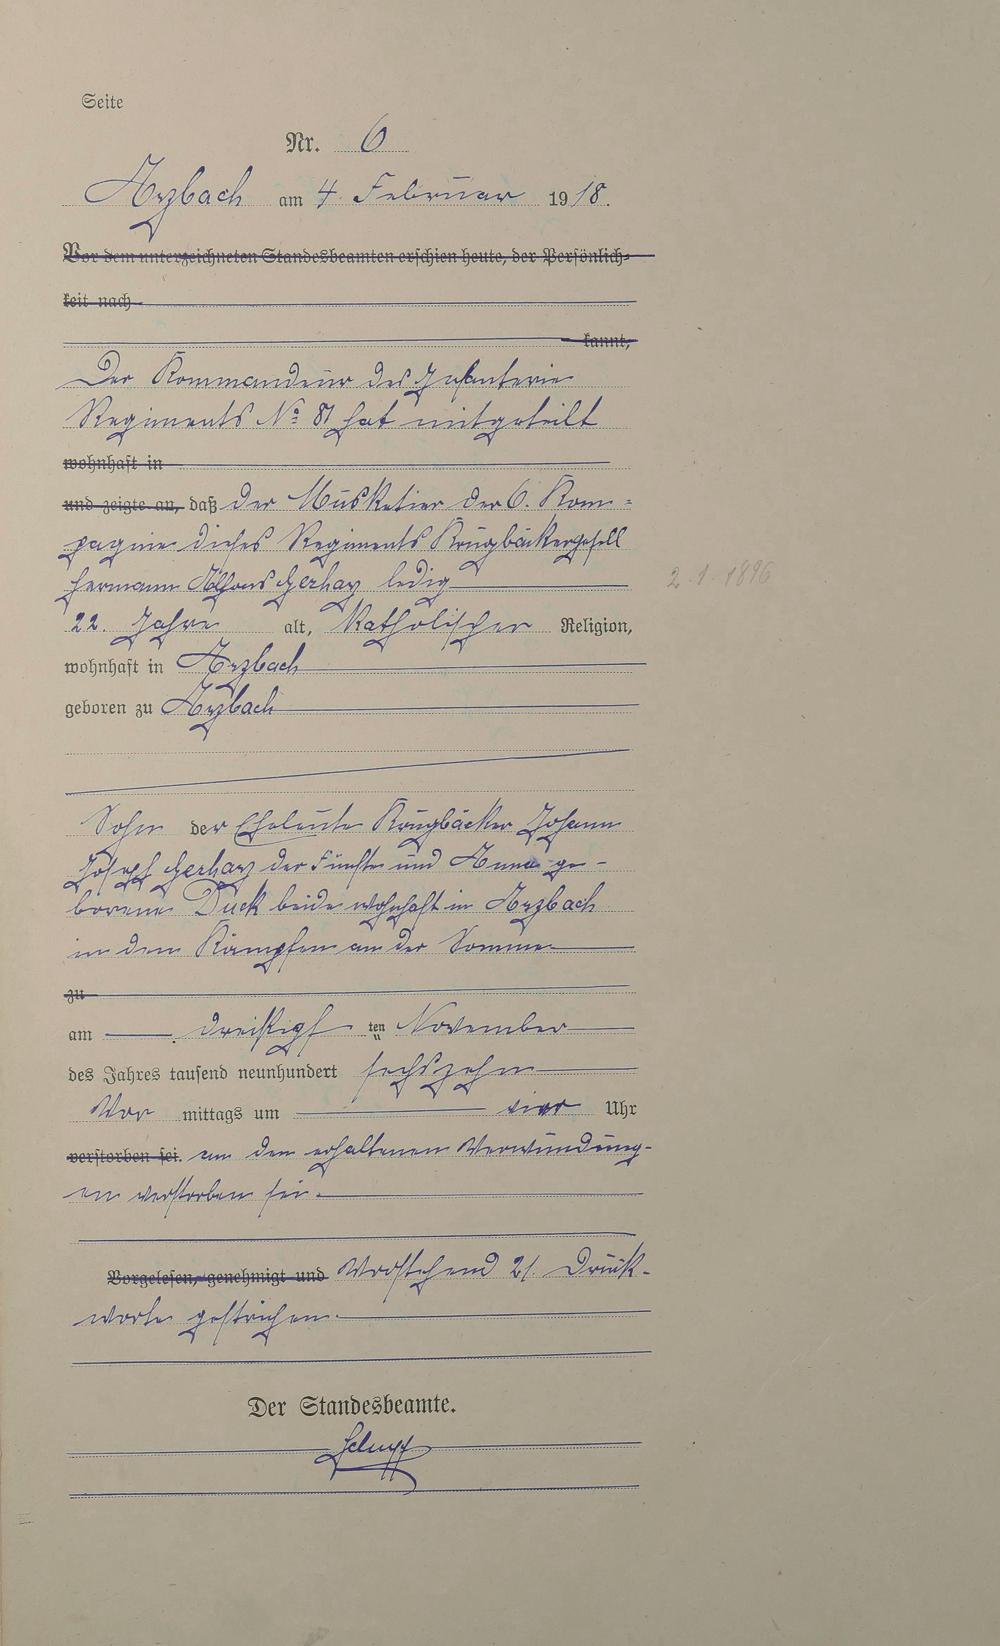 Seite
Nr. 6
Arzbach am 4. Februar 1918.
Vor dem unterzeichneten Standesbeamten erschien heute, der Persönlich-
keit nach
kannt,
Der Kommandeur des Infanterie
Regiments No 81 hat mitgeteilt
wohnhaft in
und zeigte an, daß der Musketier der 6. Kom-
pagnie dieses Regiments Krugbäckergesell
Hermann Alfons Gerharz ledig
22. Jahre alt, katholischer Religion,
wohnhaft in Arzbach
geboren zu Arzbach
Sohn der Eheleute Krugbäcker Johann
Joseph Gerharz der Fünfte und Anna ge-
borene Duck beide wohnhaft in Arzbach
in den Kämpfen an der Somme
zu
am dreißigst ten November
des Jahres tausend neunhundert sechszehn
Vor mittags um vier Uhr
verstorben sei. an den erhaltenen Verwundung-
en verstorben sei.
Vorgelesen, genehmigt und Vorstehend 21. Druck-
worte gestrichen.
Der Standesbeamte.
2. 1. 1896